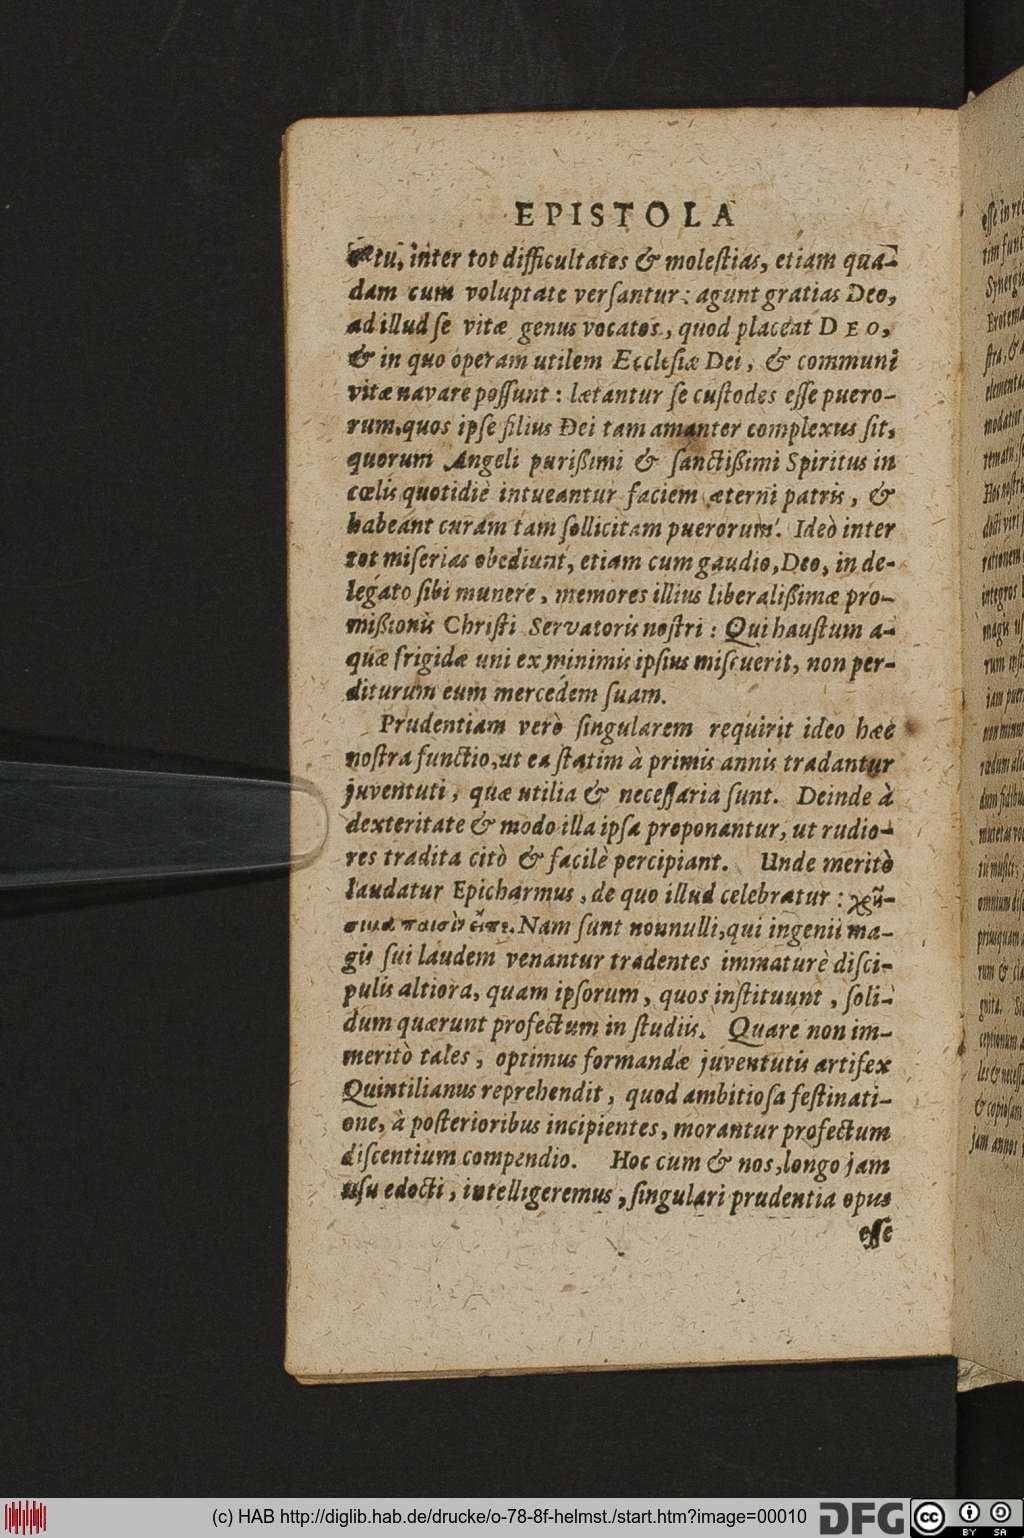 EPISTOLA
cœtu, inter tot difficultates & molestias, etiam qua-
dam cum voluptate versantur: agunt gratias Deo,
ad illud se vitæ genus vocatos, quod placeat DEO,
& in quo operam utilem Ecclesiæ Dei, & communi
vitæ navare possunt: lætantur se custodes esse puero-
rum, quos ipse filius Dei tam amanter complexus sit,
quorum Angeli purißimi & sanctißimi Spiritus in
cœlis quotidiè intueantur faciem æterni patris, &
habeant curam tam sollicitam puerorum. Ideò inter
tot miserias obediunt, etiam cum gaudio, Deo, in de-
legato sibi munere, memores illius liberalißimæ pro-
mißionis Christi Servatoris nostri: Qui haustum a-
quæ frigidæ uni ex minimis ipsius miscuerit, non per-
diturum eum mercedem suam.
Prudentiam verò singularem requirit ideo hæc
nostra functio, ut ea statim à primis annis tradantur
juventuti, quæ utilia & necessaria sunt. Deinde à
dexteritate & modo illa ipsa proponantur, ut rudio-
res tradita citò & facilè percipiant. Unde meritò
laudatur Epicharmus, de quo illud celebratur: χρή-
σιμα παισὶν εἶπε. Nam sunt nonnulli, qui ingenii ma-
gis sui laudem venantur tradentes immaturè disci-
pulis altiora, quam ipsorum, quos instituunt, soli-
dum quærunt profectum in studiis. Quare non im-
meritò tales, optimus formandæ juventutis artifex
Quintilianus reprehendit, quod ambitiosa festinati-
one, à posterioribus incipientes, morantur profectum
discentium compendio. Hoc cum & nos, longo jam
usu edocti, intelligeremus, singulari prudentia opus
esse
(c) HAB http://diglib.hab.de/drucke/o-78-8f-helmst./start.htm?image=00010
DFG
cc
BY SA